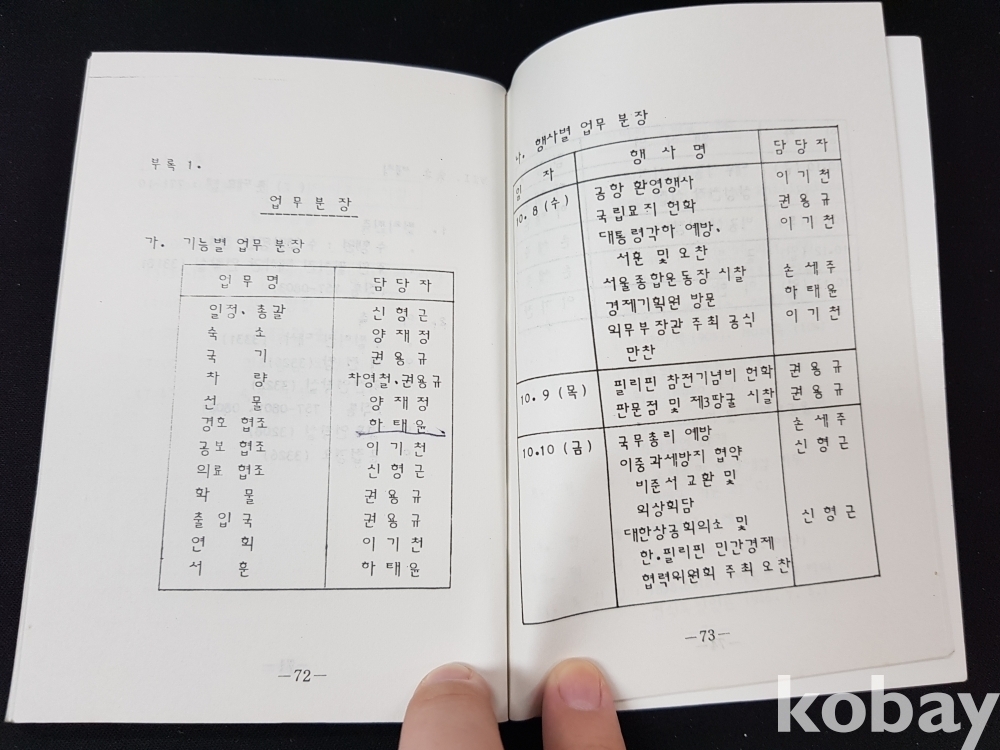 부록 1.
업무분장
가. 기능별 업무 분장
업 무 명 담 당 자
일정. 총괄 신 형 근
숙 소 양 재 정
국 기 권 용 규
차 량 차영철.권용규
선 물 양 재 정
경호 협조 하 태 윤
공보 협조 이 기 천
의료 협조 신 형 근
화 물 권 용 규
출 입 국 권 용 규
연 회 이 기 천
서 훈 하 태 윤
—72—
나. 행사별 업무 분장
일 자 행 사 명 담 당 자
10. 8 (수) 공항 환영행사 이 기 천
국립묘지 헌화 권 용 규
대통령각하 예방. 이 기 천
서훈 및 오찬
서울종합운동장 시찰 손 세 주
경제기획원 방문 하 태 윤
외무부장관 주최 공식 이 기 천
만찬
10. 9 (목) 필리핀 참전기념비 헌화 권 용 규
판문점 및 제3땅굴 시찰 권 용 규
10.10 (금) 국무총리 예방 손 세 주
이중과세방지 협약 신 형 근
비준서 교환 및
외상회담
대한상공회의소 및 신 형 근
한.필리핀 민간경제
협력위원회 주최 오찬
—73—
kobay